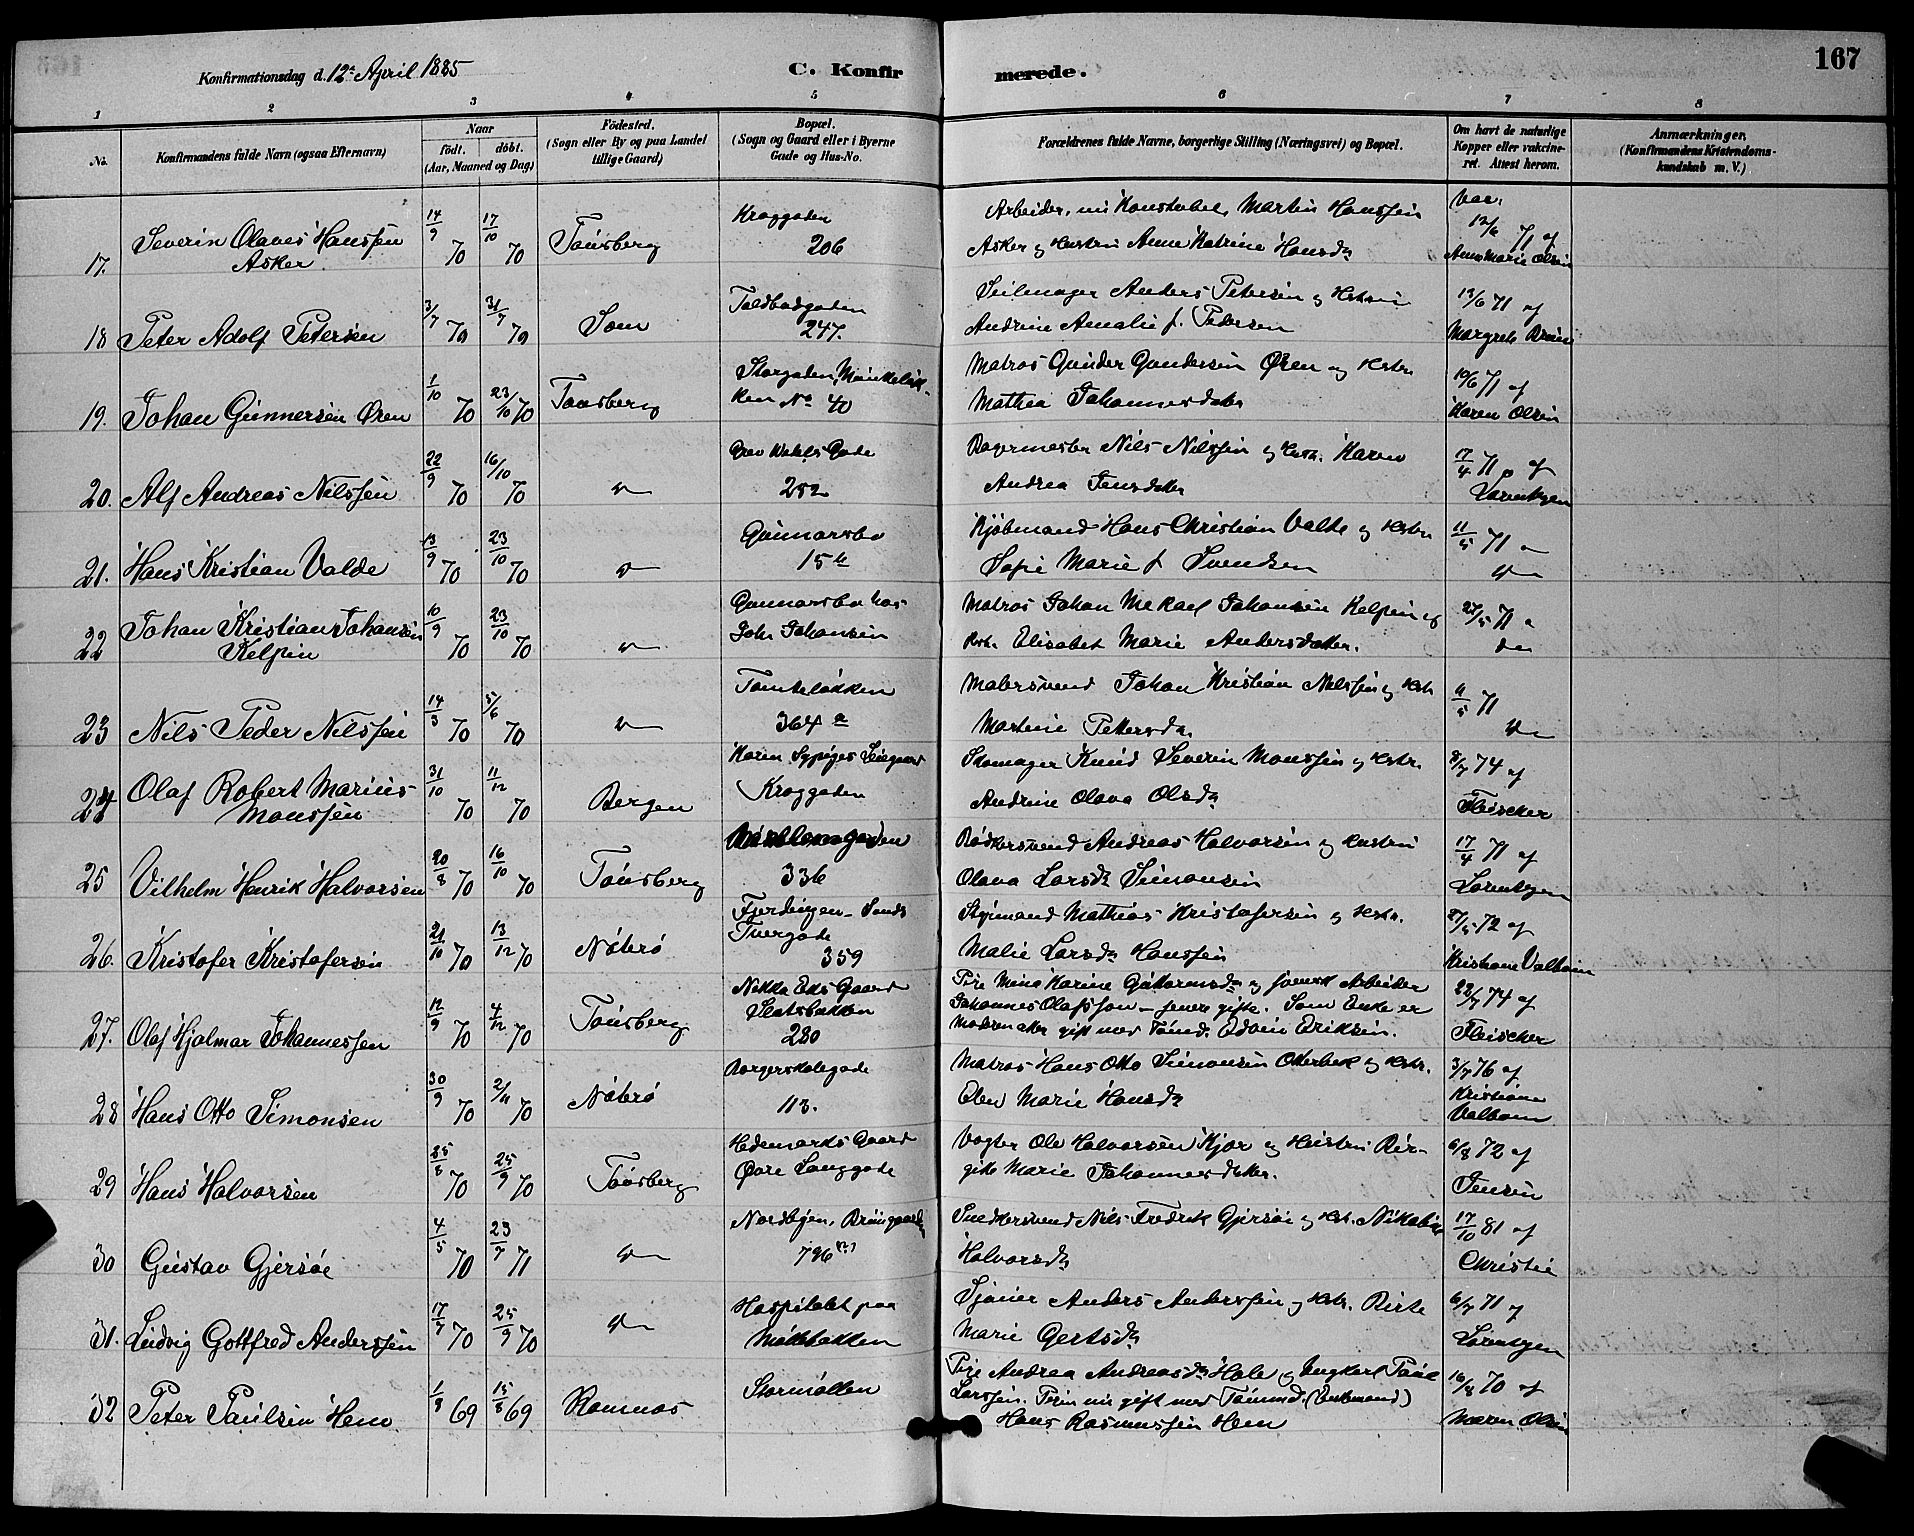 167
Konfirmationsdag d. 12te April 1885
C. Konfirmerede.
1 2 3 4 5 6 7 8
No.
Konfirmandens fulde Navn (ogsaa Efternavn)
Naar
födt. döbt.
(Aar, Maaned og Dag)
Födested.
(Sogn eller By og paa Landet
tillige Gaard)
Bopæl.
(Sogn og Gaard eller i Byerne
Gade og Hus-No.
Forældrenes fulde Navne, borgerlige Stilling (Næringsvei) og Bopæl.
Om havt de naturlige
Kopper eller vakcine-
ret. Attest herom.
Anmærkninger.
(Konfirmandens Kristendoms-
kundskab m. V.)
17. Severin Olaves Hanssen
Asker
14/9 70 17/10 70 Tønsberg
Kraggaden
206
Arbeider, nu Konstabel, Martin Hanssen
Asker og Hustru Anne Katrine Hansd.
Vac.
12/6 71 af
Anne Marie Olsen
18 Peter Adolf Petersen
3/7 70 31/7 70 Sem
Toldbodgaden
247.
Seilmager Anders Petersen og Hustru
Andrine Amalie f. Pedersen
13/6 71 af
Margrete Bruun
19. Johan Gunnersen Øren
1/10 70 23/10 70 Tønsberg
Storgaden, Munkeløk-
ken No 40
Matros Gunder Gundersen Øren og Hustru
Mathea Johannesdatter
19/6 71 af
Karen Olsen
20. Alf Andreas Nilssen
22/9 70 16/10 70
Grev Wedels Gade
252
Nils Nilssen og Hustr. Karen
Andrea Jensdatter
17/4 71 af
Lorentzen
21. Hans Kristian Valde
13/9 70 23/10 70
Gunnarsbo
15 b
Kjøbmand Hans Christian Valde og Hustru
Sofie Marie f Svendsen
11/5 71
22 Johan Kristian Johansen
Kelpin
10/9 70 23/10 70
Gunnarsbo hos
Johs Johansen
Matros Johan Mekael Johansen Kelpin og
Hstr. Elisabet Marie Andersdatter.
27/5 71
23 Nils Peder Nilssen
14/3 70 5/6 70
Tomteløkken
364 a
Malersvend Johan Kristian Nilssen og Hstr
Martine Pettersd.
71
24 Olaf Robert Marius
Monssen
31/10 70 11/12 70 Bergen
Kraggaden
Skomager Knud Severin Monssen og Hstr.
Andrine Olava Olsd.
8/7 74 af
Fleischer
25 Vilhelm Henrik Halvorsen
20/8 70 16/10 70 Tønsberg
336
Bødkersvend Andreas Halvorsen og Hustru
Olava Larsd. Simonsen
17/4 71 af
Lorentzen
26. Kristofer Kristofersen
21/10 70 13/12 70 Nøterø
Fjerdingen - Sands
Tvergade
359
Styrmand Mathias Kristofersen og Hstr.
Malie Larsd. Hanssen
27/5 72 af
Kristiane Valbom
27. Olaf Hjalmar Johannessen
12/9 70 4/12 70 Tønsberg
Slotsbakken
280
Pige Mina Karine Guttormsd. og svensk Arbeider
Johannes Olafsson - senere gifte. Som Enke er
Moderen atter gift med Tømd. Edvin Eriksen.
22/7 74 af
Fleischer
28 Hans Otto Simonsen
30/9 70 2/11 70 Nøterø
Borgerskolegade
113.
Matros Hans Otto Simonsen Otterbek og Hstr.
Elen Marie Hansd.
3/7 76 af
Kristiane
Valbom
29 Hans Halvorsen
25/8 70 25/9 70 Tønsberg
Hedemarks Gaard
Øvre Langgade
Vogter Ole Halvorsen Kjær og Hustru Bir-
gite Marie Johannesdatter.
6/8 72 af
Jensen
30 Gustav Gjersøe
4/5 70 23/7 71
Nordbyen, Bruungaarden
796
Snedkersvend Nils Fredrik Gjersøe og Hst. Nikoline
Halvorsd.
17/10 81 af
Christie
31. Ludvig Gottfred Anderssen
17/7 70 25/9 70
Hospitalet paa
Møllebakken
Sjauer Anders Anderssen og Hstr. Birte
Marie Gertsd.
6/7 71 af
Lorentzen
32 Peter Paulsen Hem
69 69 Ramnæs
Stormøllen
Pige Andrea Andreasd. Hole og Ungkarl Paul
Larssen. Pigen nu gift med Tømmd. (Enkemand)
Hans Rasmussen Hem
16/8 70 af
Maren Olsen